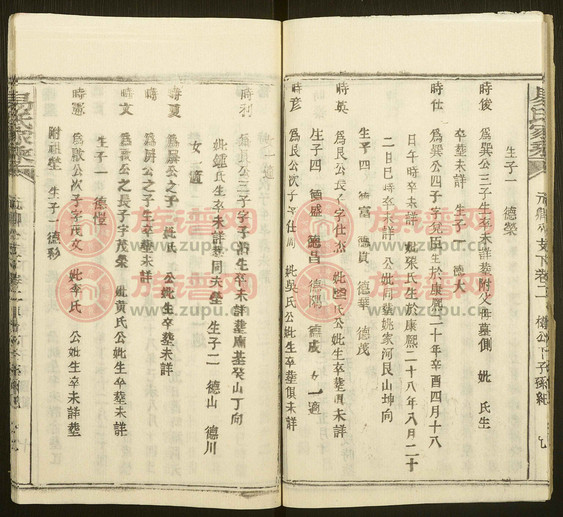 生子一 德榮
時後 為巽公三子生卒未詳葬附父母墓側 妣 氏生
卒葬未詳 生子一 德大
時仕 為巽公四子字 生於康熙二十年辛酉四月十八
日午時卒未詳 妣 氏生於康熙二十八年八月二十
二日巳時卒未詳 公妣同葬姚家河艮山坤向
生子四 德富 德貞 德華 德茂
時英 為艮公長子字仕杰 妣 氏公妣生卒葬俱未詳
生子四 德盛 德昌 德陽 德成 女一適
時彥 為艮公次子字仕 妣吳氏公妣生卒葬俱未詳
女一適
時利 為 公三子字 生卒未詳葬廟基癸山丁向
妣鍾氏生卒未詳葬同夫塋 生子二 德山 德川
女一適
時夏 為屏公之子 妣 氏 公妣生卒葬未詳
時 為屏公之子生卒葬未詳
時文 為 公之長子字茂榮 妣黃氏公妣生卒葬未詳
生子一 德惺
時憲 為 公次子字茂文 妣李氏 公妣生卒未詳葬
附祖塋 生子一 德彩
易氏家乘
族譜网
www.zupu.cn
族譜网
www.zupu.cn
族譜网
www.zupu.cn
族譜网
www.zupu.cn